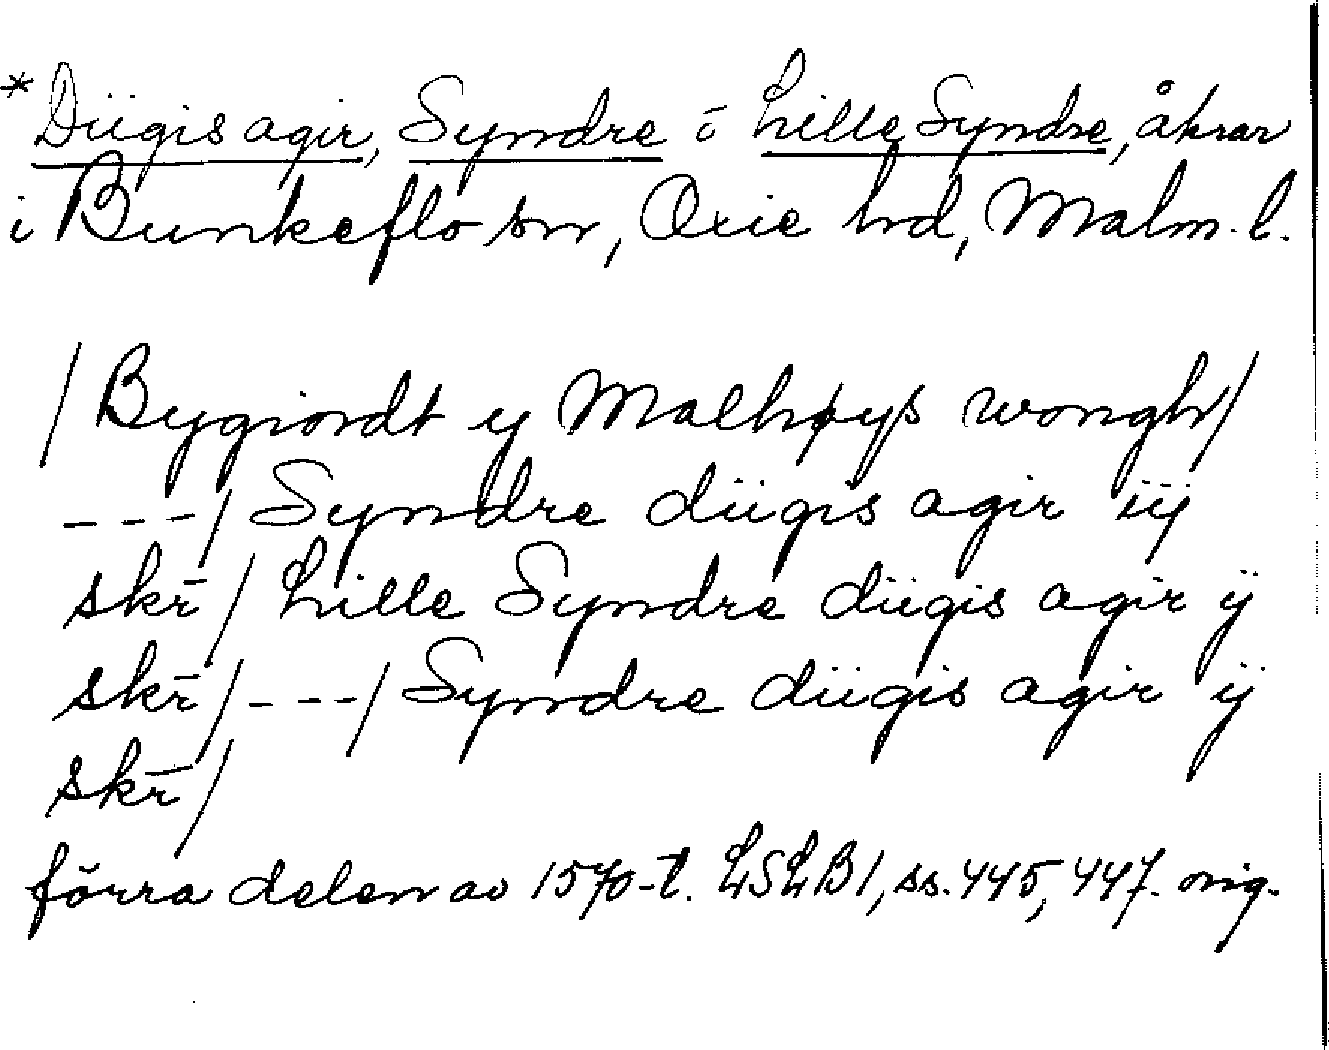 *Diigis agir, Syndre o Lille Syndre, åkrar
i Bunkeflo sn, Oxie hd, Malm. l.
/ Bygiordt y Malhøys wongh/
---/ Syndre diigis agir iij
skr̄/ Lille Syndre diigis agir ij
skr̄/---/ Syndre diigis agir ij
skr̄/
förra delen av 1570-t. LSLB1, ss. 445, 447. orig.